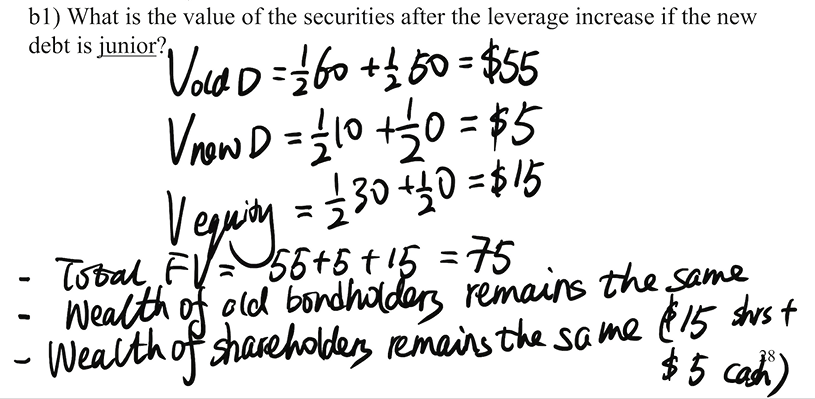 b1) What is the value of the securities after the leverage increase if the new
debt is junior?
Vold D = 1/2 60 + 1/2 50 = $55
Vnew D = 1/2 10 + 1/2 0 = $5
Vequity = 1/2 30 + 1/2 0 = $15
- Total FV = 55 + 5 + 15 = 75
- Wealth of old bondholders remains the same
- Wealth of shareholders remains the same ($15 shrs +
$5 cash)
28